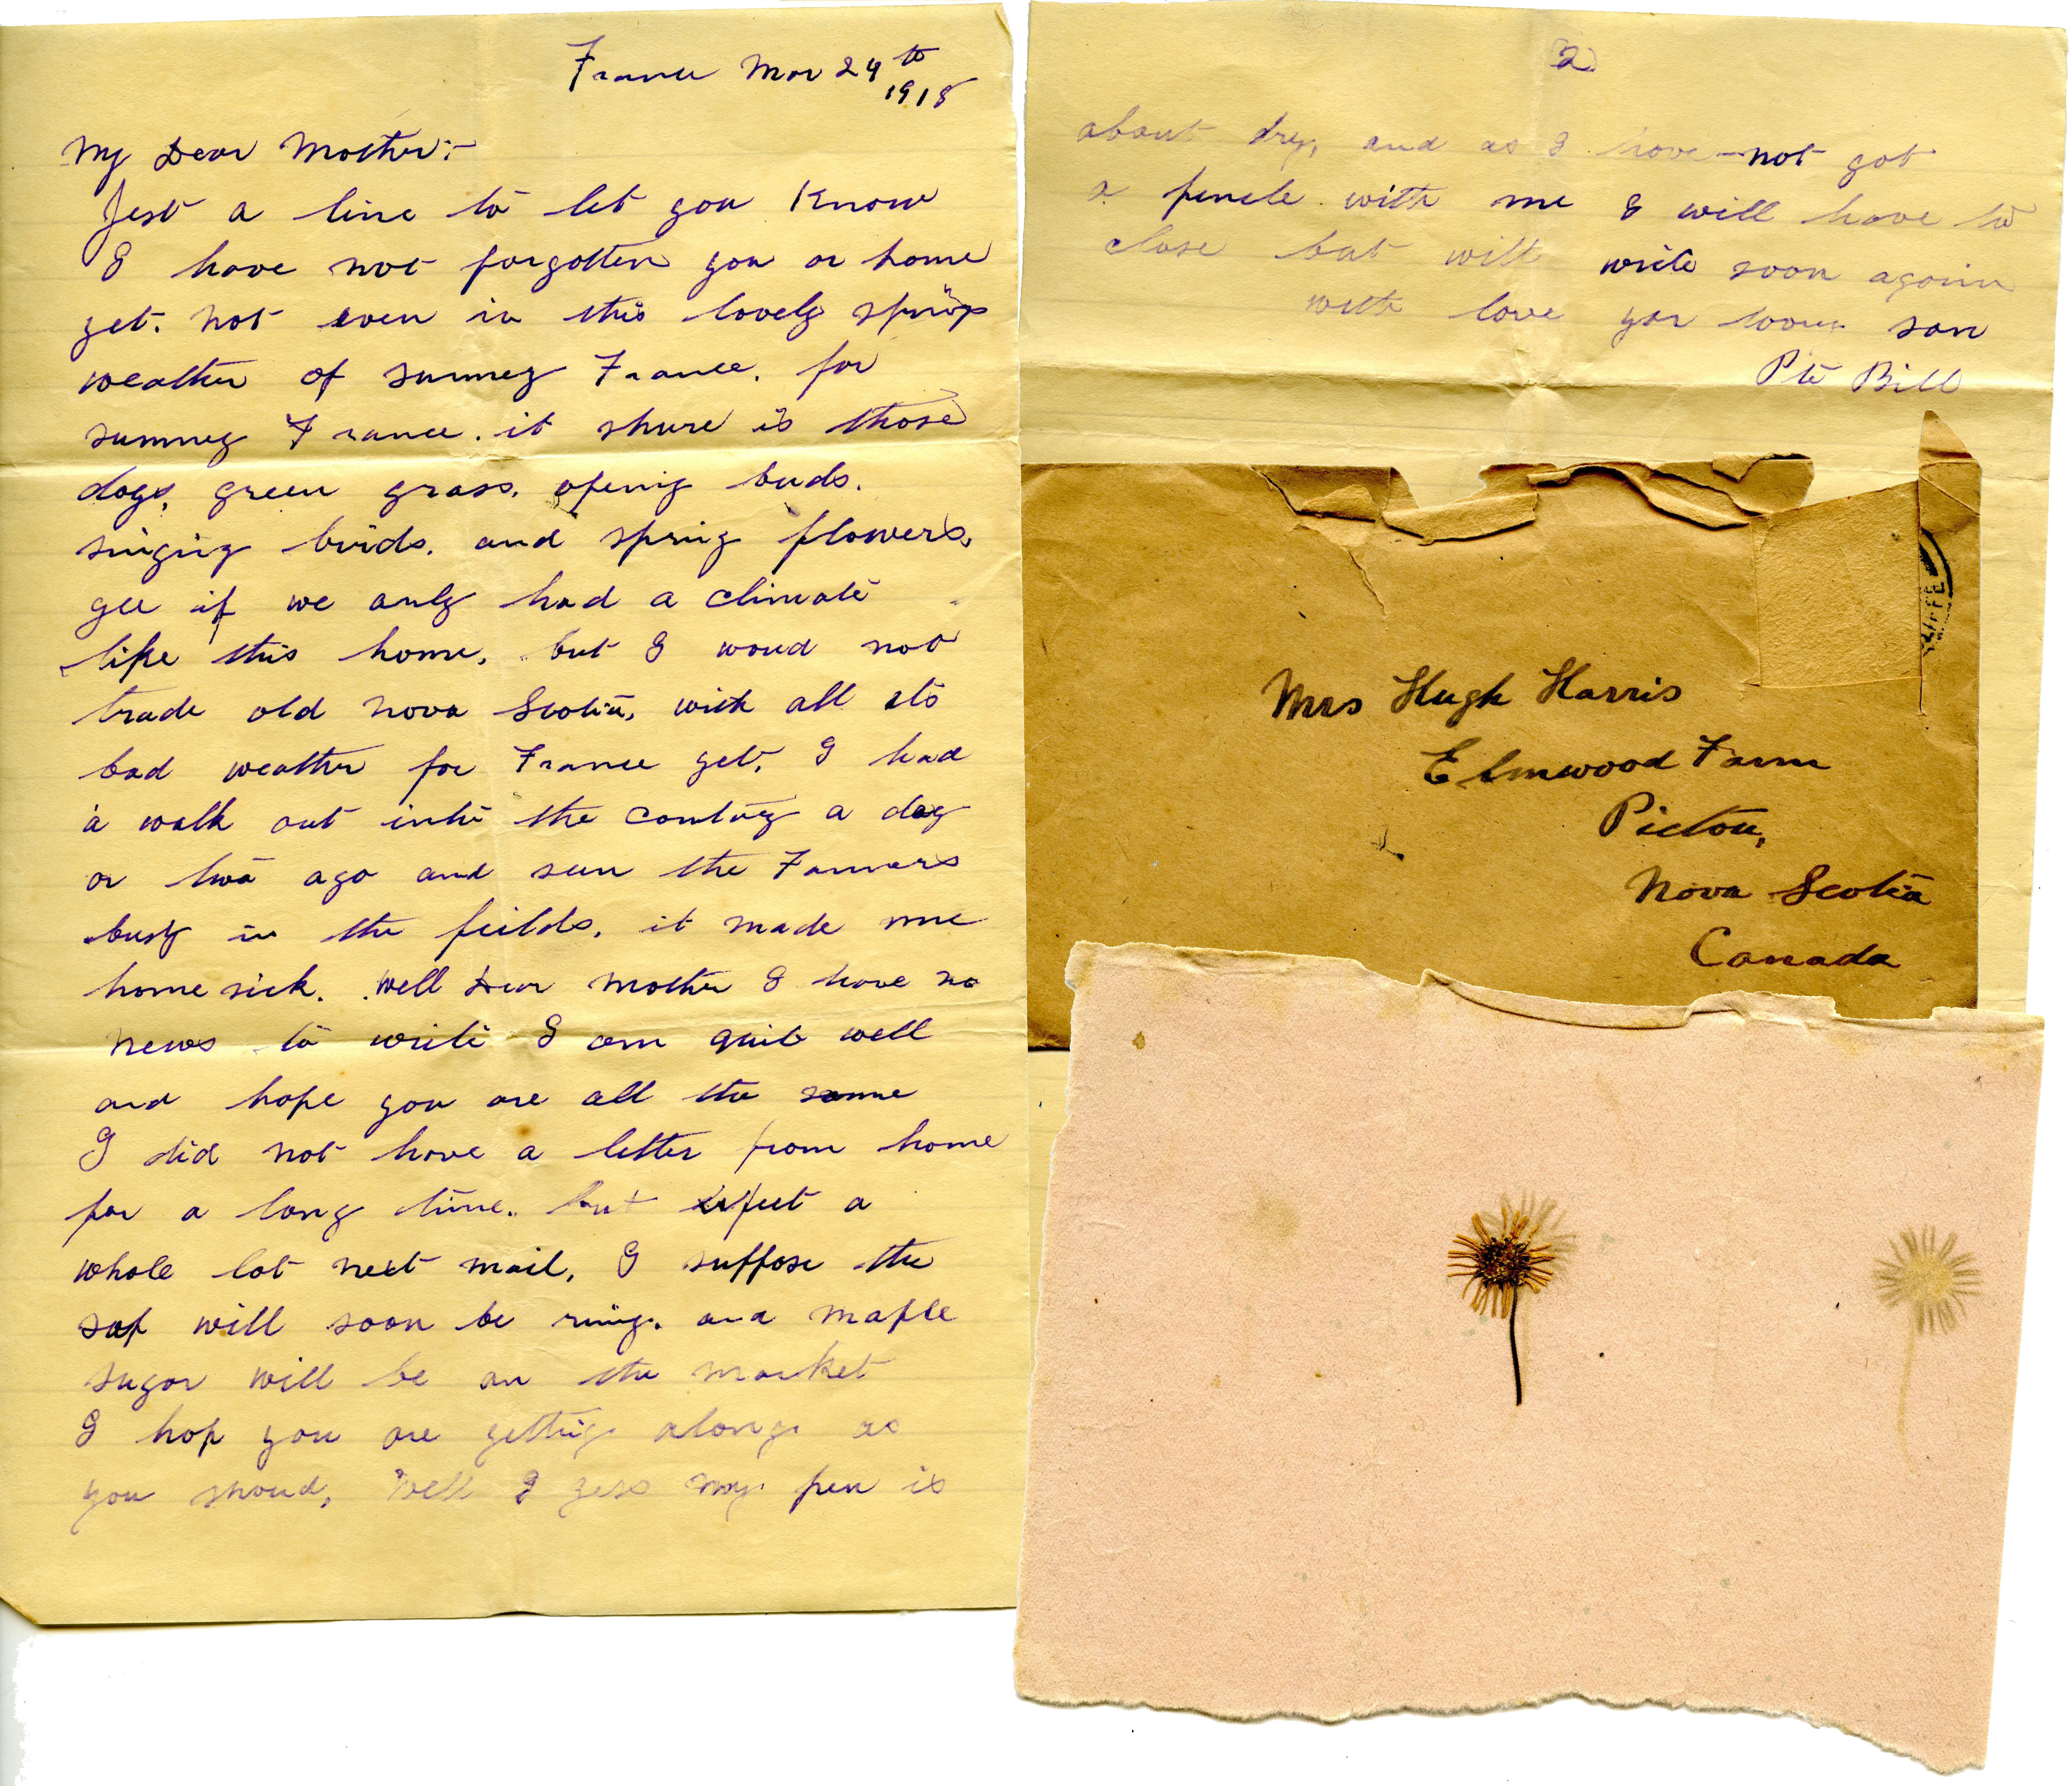 France Mar 24th
1918
My Dear Mother:-
Jest a line to let you Know
I have not forgotten you or home
yet. not even in this lovely spring
weather of sunney France. for
sunney France. it shure is those
days, green grass, opening buds.
singing birds. and spring flowers,
gee if we only had a climate
like this home, but I woud not
trade old Nova Scotia, with all its
bad weather for France yet, I had
a walk out into the contry a day
or two ago and seen the Farmers
busy in the feilds. it made me
home sick. Well Dear Mother I have no
news to write I am quite well
and hope you are all the same
I did not have a letter from home
for a long time. but expect a
whole lot next mail, I suppose the
sap will soon be runing. and maple
sugar will be on the market
I hop you are getting along as
you shoud, Well I gess my pen is
2
about dry, and as I have not got
a pencle with me I will have to
close but will write soon again
with love your loving son
Pte Bill
Mrs Hugh Harris
Elmwood Farm
Pictou,
Nova Scotia
Canada